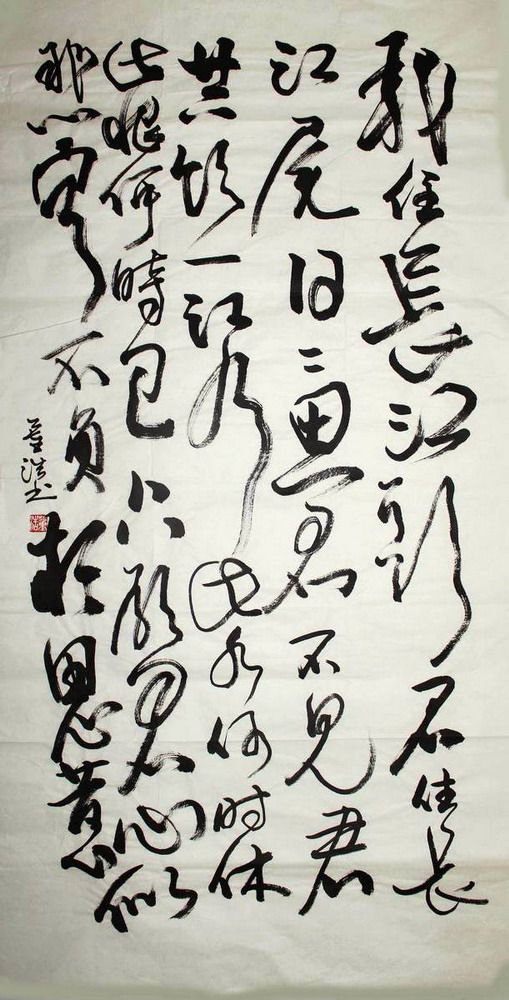 我住長江頭君住長
江尾日々思君不見君
共飲一江水此水何时休
此恨何時已只願君心似
我心定不負相思意
浩书